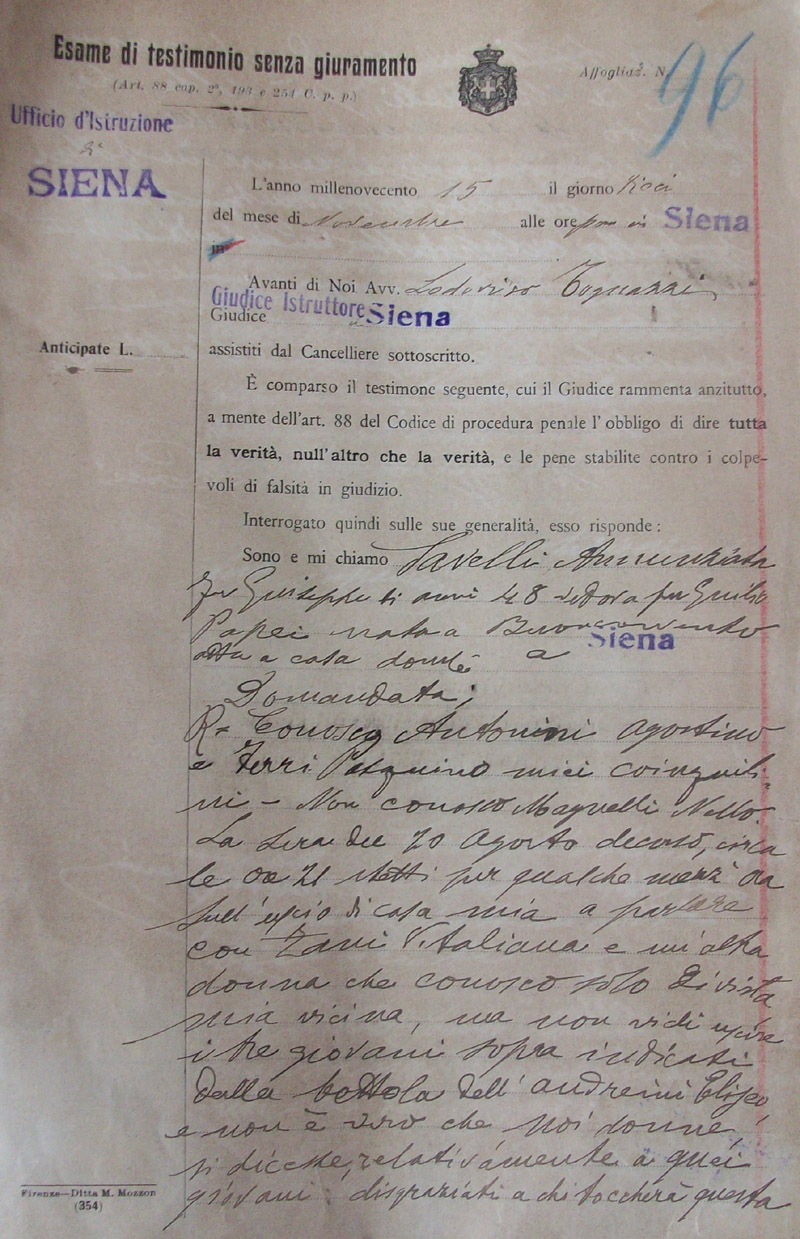 Esame di testimonio senza giuramento
(Art. 88 cap. 2°, 493 e 254 C. p. p.)
Affogliaz. N.
96
Ufficio d'Istruzione
SIENA
L'anno millenovecento 15 il giorno
del mese di Novembre alle ore Siena
Avanti di Noi Avv. Lodovico Tognazzi
Giudice Istruttore Siena
Giudice
Anticipate L.
assistiti dal Cancelliere sottoscritto.
È comparso il testimone seguente, cui il Giudice rammenta anzitutto,
a mente dell'art. 88 del Codice di procedura penale l'obbligo di dire tutta
la verità, null'altro che la verità, e le pene stabilite contro i colpe-
voli di falsità in giudizio.
Interrogato quindi sulle sue generalità, esso risponde:
Sono e mi chiamo Savelli Annunziata
fu Giuseppe di anni 48 vedova fu Emilio
Papei nata a Buonconvento
atta a casa domta a Siena
Domandata;
R= Conosco Antonini Agostino
e Ferri Pasquino miei coinquili-
ni - Non conosco Magnelli Nello.
La sera del 20 Agosto decorso, circa
le ore 21 stetti per qualche mezz'ora
sull'uscio di casa mia a parlare
con Zani Vitaliana e un'altra
donna che conosco solo di vista
mia vicina, ma non vidi uscire
i tre giovani sopra indicati
dalla bottola dell'Andreini Eliseo,
e non è vero che noi donne
si dicesse, relativamente a quei
giovani: disgraziati a chi toccherà questa
Firenze—Ditta M. Mozzon
(354)